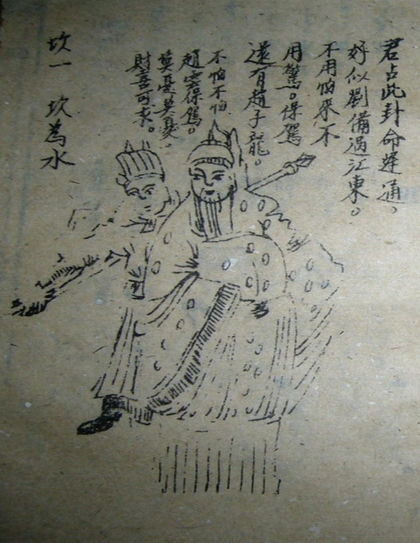 君占此封命運通。
好似劉備過江東。
不用怕來不
用驚。保駕
還有趙子龍。
不怕不怕
趙雲保駕。
莫憂莫憂。
財喜可求。
坎一 坎為水